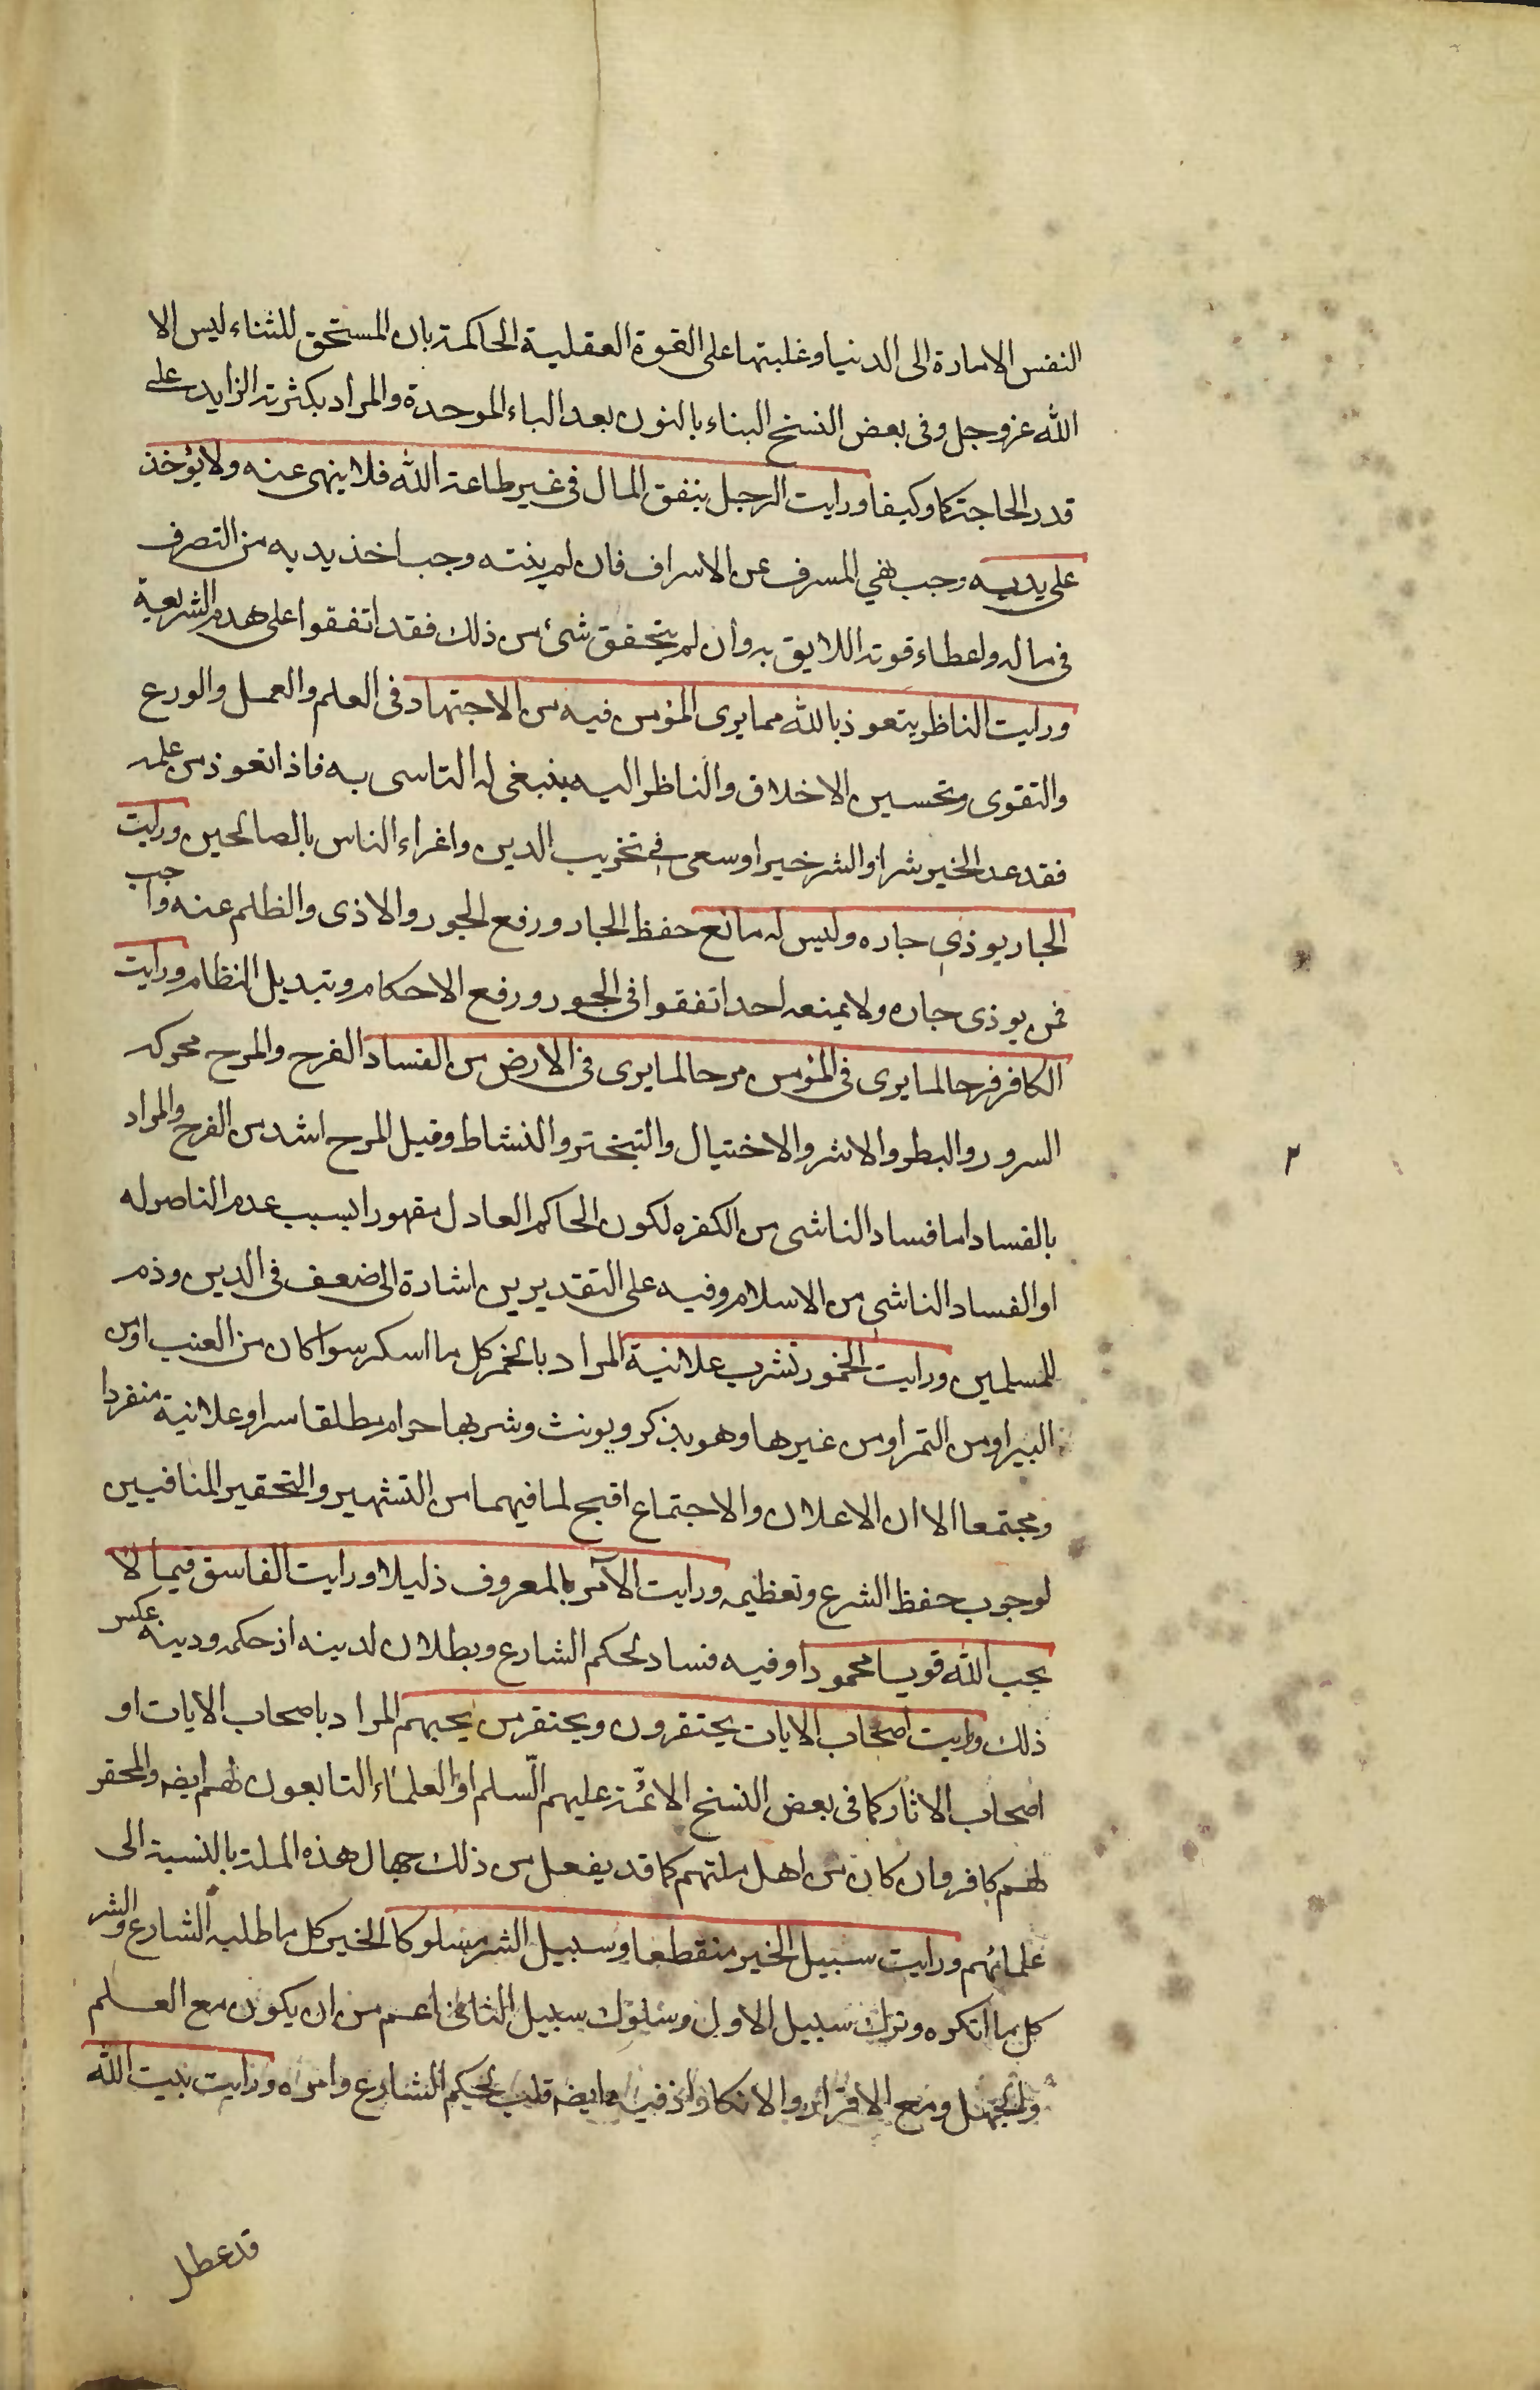 النفس الامارة الى الدنيا وغلبتها على القوة العقلية الحاكمة بان المستحق للثناء ليس الا
الله عز وجل وفى بعض النسخ البناء بالنون بعد الباء الموحدة والمراد بكثرته الزايد على
قدر الحاجة كما وكيفا ورايت الرجل ينفق المال فى غير طاعة الله فلا ينهى عنه ولا يؤخذ
على يديه وجب نهي المسرف عن الاسراف فان لم ينته وجب اخذ يديه من التصرف
فى ماله واعطاء قوته اللايق به وان لم يتحقق شئ من ذلك فقد اتفقوا على هدم الشريعة
ورايت الناظر يتعوذ بالله مما يرى المؤمن فيه من الاجتهاد فى العلم والعمل والورع
والتقوى وتحسين الاخلاق والناظر اليه ينبغى له التاسى به فاذا تعوذ من علمه
فقد عد الخير شرا والشر خيرا وسعى فى تخريب الدين واغراء الناس بالصالحين ورايت
الجار يوذي جاره وليس له مانع حفظ الجار ورفع الجور والاذى والظلم عنه واجب
فمن يوذى جاره ولا يمنعه احد اتفقوا فى الجور ورفع الاحكام وتبديل النظام ورايت
الكافر فرحا لما يرى فى المؤمن مرحا لما يرى فى الارض من الفساد الفرح والمرح محركه
السرور والبطر والاشر والاختيال والتبختر والنشاط وقيل المرح اشد من الفرح والمراد
بالفساد اما فساد الناشى من الكفره لكون الحاكم العادل مقهورا بسبب عدم الناصر له
او الفساد الناشى من الاسلام وفيه على التقديرين اشارة الى ضعف فى الدين وذم
للمسلمين ورايت الخمور تشرب علانية المراد بالخمر كل ما اسكر سوا كان من العنب او من
البسر او من التمر او من غيرها وهو يذكر ويونث وشربها حرام مطلقا سرا وعلانية منفردا
ومجتمعا الا ان الاعلان والاجتماع اقبح لما فيهما من التشهير والتحقير المنافيين
لوجوب حفظ الشرع وتعظيمه ورايت الآمر بالمعروف ذليلا ورايت الفاسق فيما لا
يحب الله قويا محمودا وفيه فساد لحكم الشارع وبطلان لدينه اذ حكمه ودينه عكس
ذلك ورايت اصحاب الايات يحتقرون ويحتقر من يحبهم المراد باصحاب الايات او
اصحاب الاثار كما فى بعض النسخ الائمة عليهم السلم او العلماء التابعون لهم ايضه والمحقر
لهم كافر وان كان من اهل ملتهم كما قد يفعل من ذلك جهال هذه الملة بالنسبة الى
علمائهم ورايت سبيل الخير منقطعا وسبيل الشر مسلوكا الخير كل ما طلبه الشارع والشر
كل ما انكره وترك سبيل الاول وسلوك سبيل الثانى اعم من ان يكون مع العلم
والجهل ومع الاقرار والانكار اذ فيه ايضه قلب لحكم الشارع وامره ورايت بيت الله
قد عطل
٢